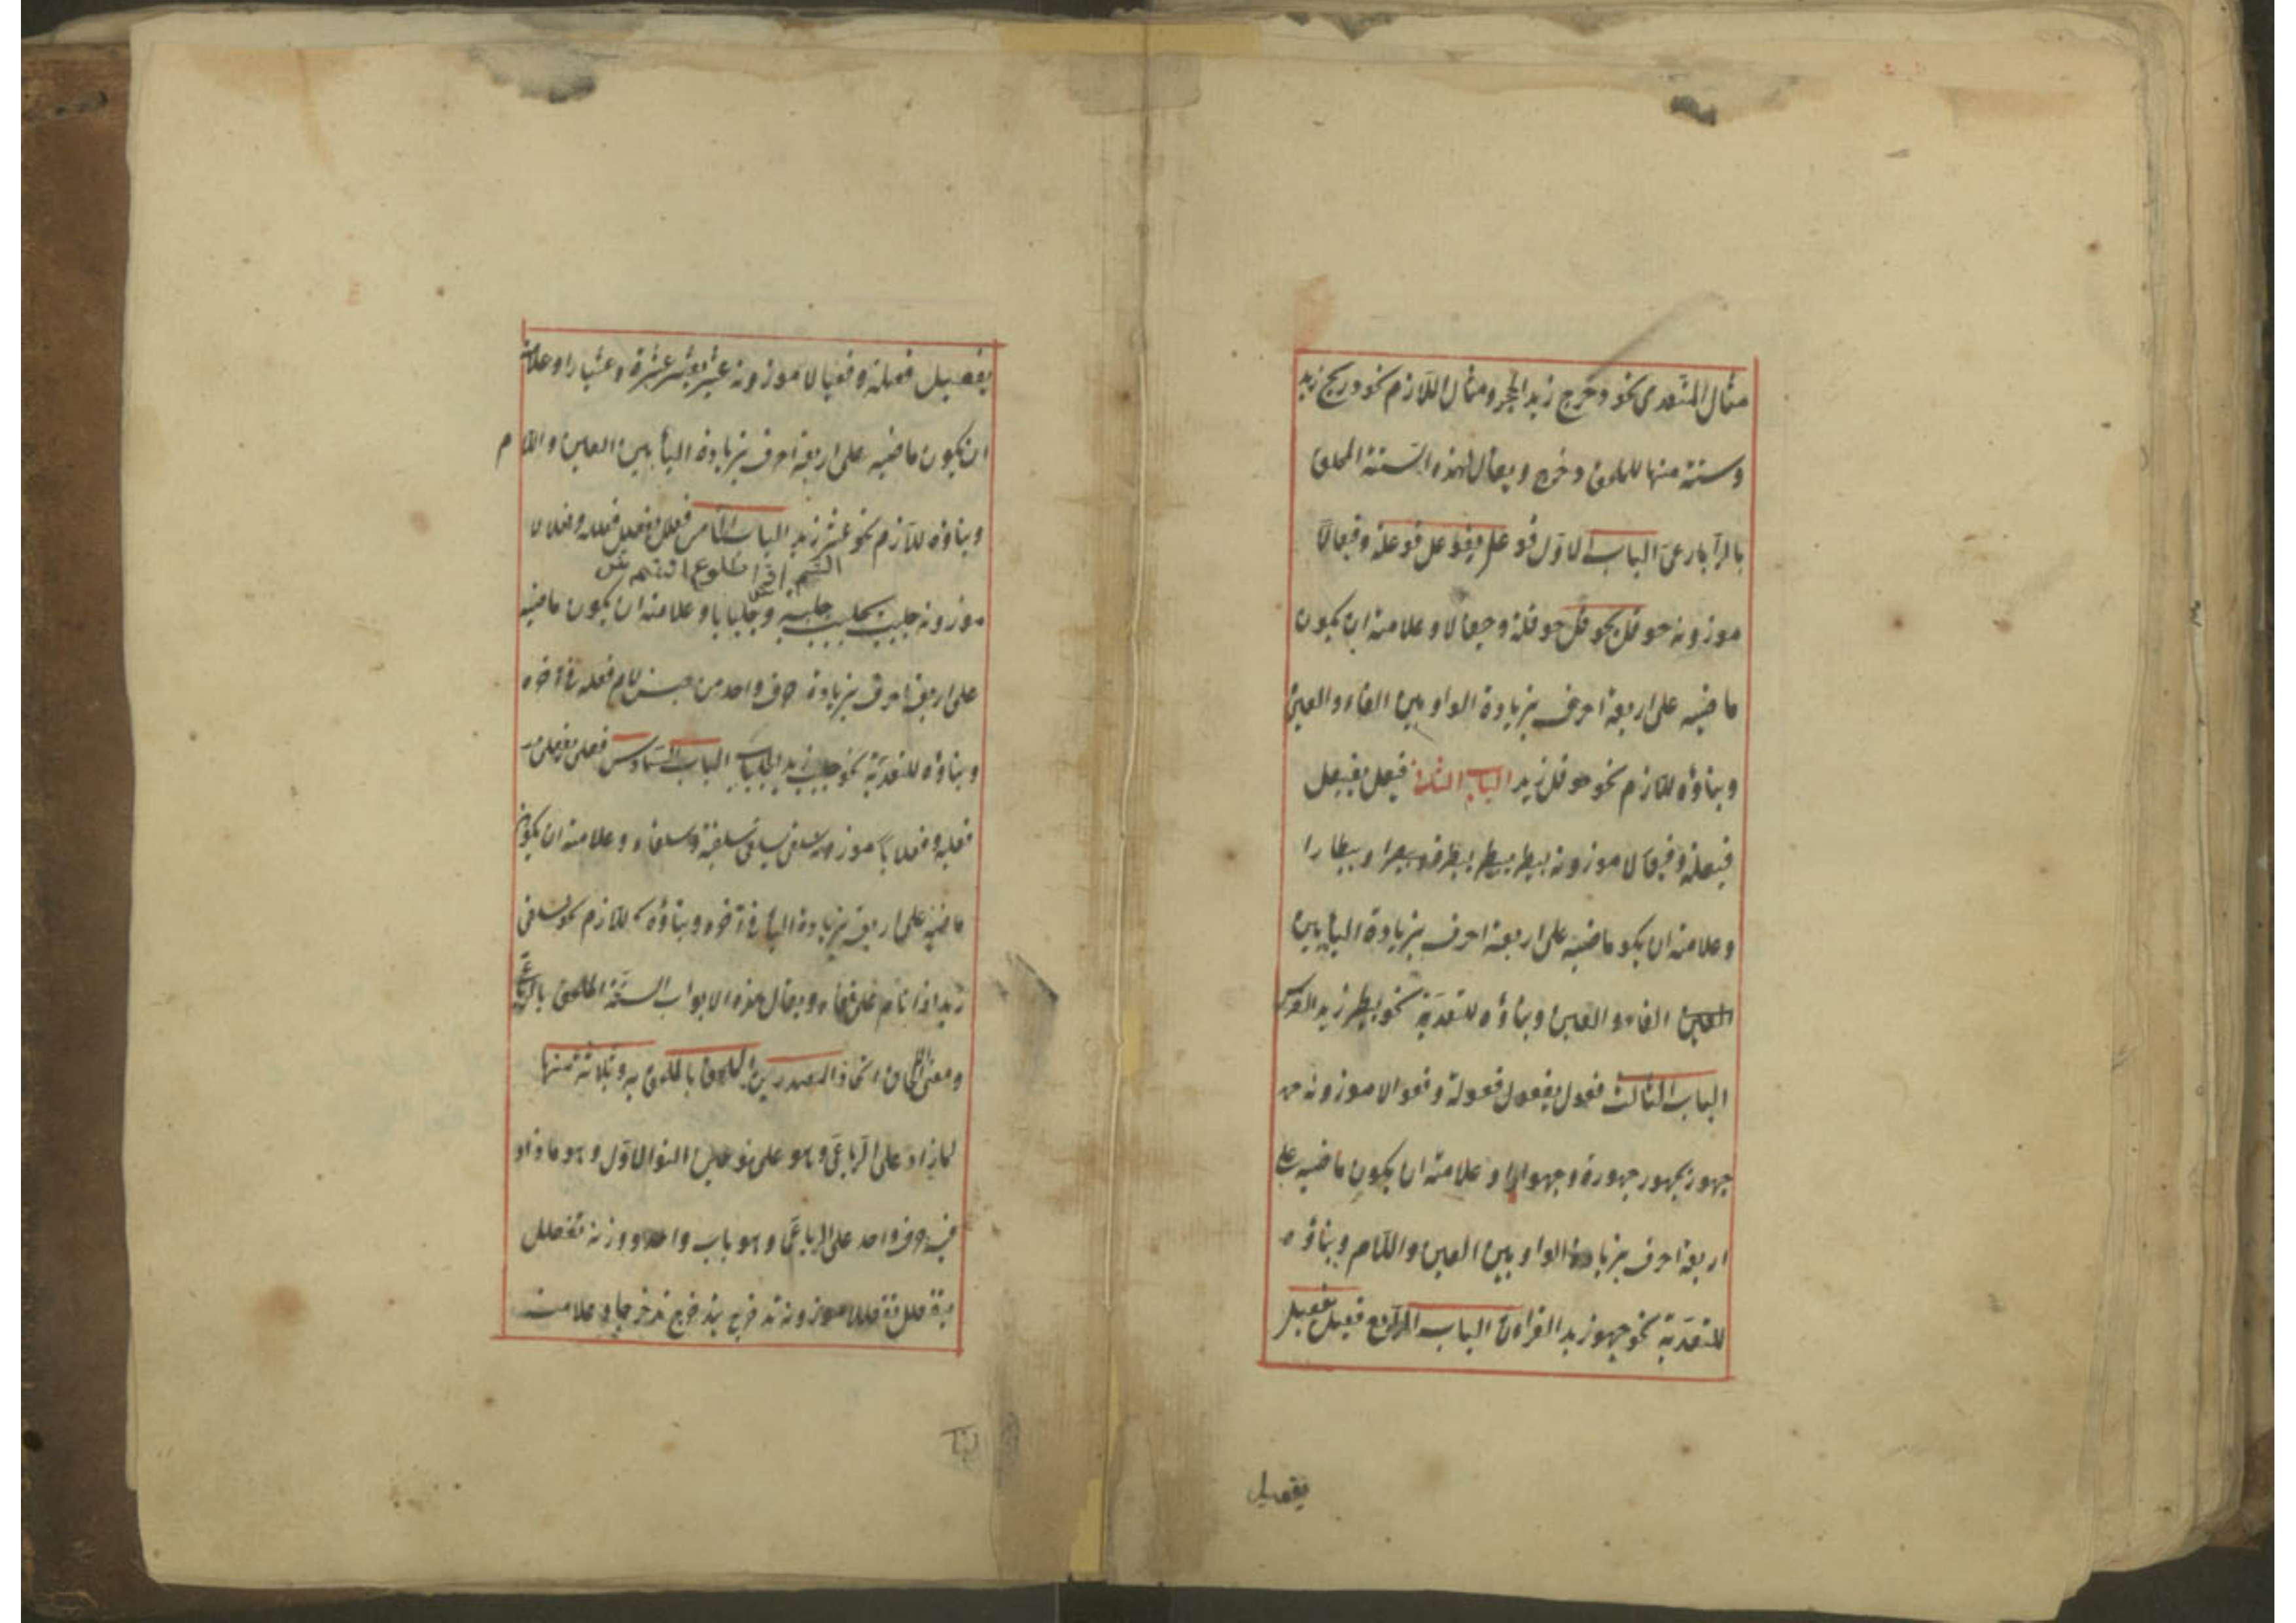 مثال المتعدى نحو دحرج زيد الحجر ومثال اللازم نحو دربح زيد
وستة منها للملحق دحرج ويقال لهذه الستة الملحق
بالرباعى الباب الاول فوعل يفوعل فوعلة وفيعالا
موزونه حوقل يحوقل حوقلة وحيقالا وعلامته ان يكون
ماضيه على اربعة احرف بزيادة الواو بين الفاء والعين
وبناؤه للازم نحو حوقل زيد الباب الثانى فيعل يفيعل
فيعلة وفيعالا موزونه بيطر يبيطر بيطرة وبيطارا
وعلامته ان يكو ماضيه على اربعة احرف بزيادة الياء بين
الفاء والعين وبناؤه للتعدية نحو بيطر زيد
الباب الثالث فعول يفعول فعولة وفعوالا موزونه
جهور يجهور جهورة وجهوارا وعلامته ان يكون ماضيه على
اربعة احرف بزيادة الواو بين العين واللام وبناؤه
للتعدية نحو جهور زيد القرآن الباب الرابع فعيل يفعيل
يفعيل
يفعيل فعيلة وفعيالا موزونه عثير يعثير عثيرة وعثيارا وعلامته
ان يكون ماضيه على اربعة احرف بزيادة الياء بين العين واللام
وبناؤه للازم نحو عثير زيد الباب الخامس فعلل يفعلل فعللة وفعلالا
موزونه جلبب يجلبب جلببة وجلبابا وعلامته ان يكون ماضيه
على اربعة احرف بزيادة حرف واحد من جنس لام فعله فى آخره
وبناؤه للتعدية نحو جلبب زيد الجلباب الباب السادس فعلى يفعلى
فعلية وفعلاء موزونه سلقى يسلقى سلقية وسلقاء وعلامته ان يكون
ماضيه على اربعة بزيادة الياء فى آخره وبناؤه للازم نحو سلقى
زيد اذا نام على قفاه ويقال لهذه الابواب الستة الملحق بالرباعى
ومعنى الالحاق اتحاد المصدرين الملحق بالملحق به وثلاثة منها
لما زاد على الرباعى وهو على نوعين النوع الاول وهو ما زاد
فيه حرف واحد على الرباعى وهو باب واحد ووزنه تفعلل
يتفعلل تفعللا موزونه تدحرج يتدحرج تدحرجا وعلامته